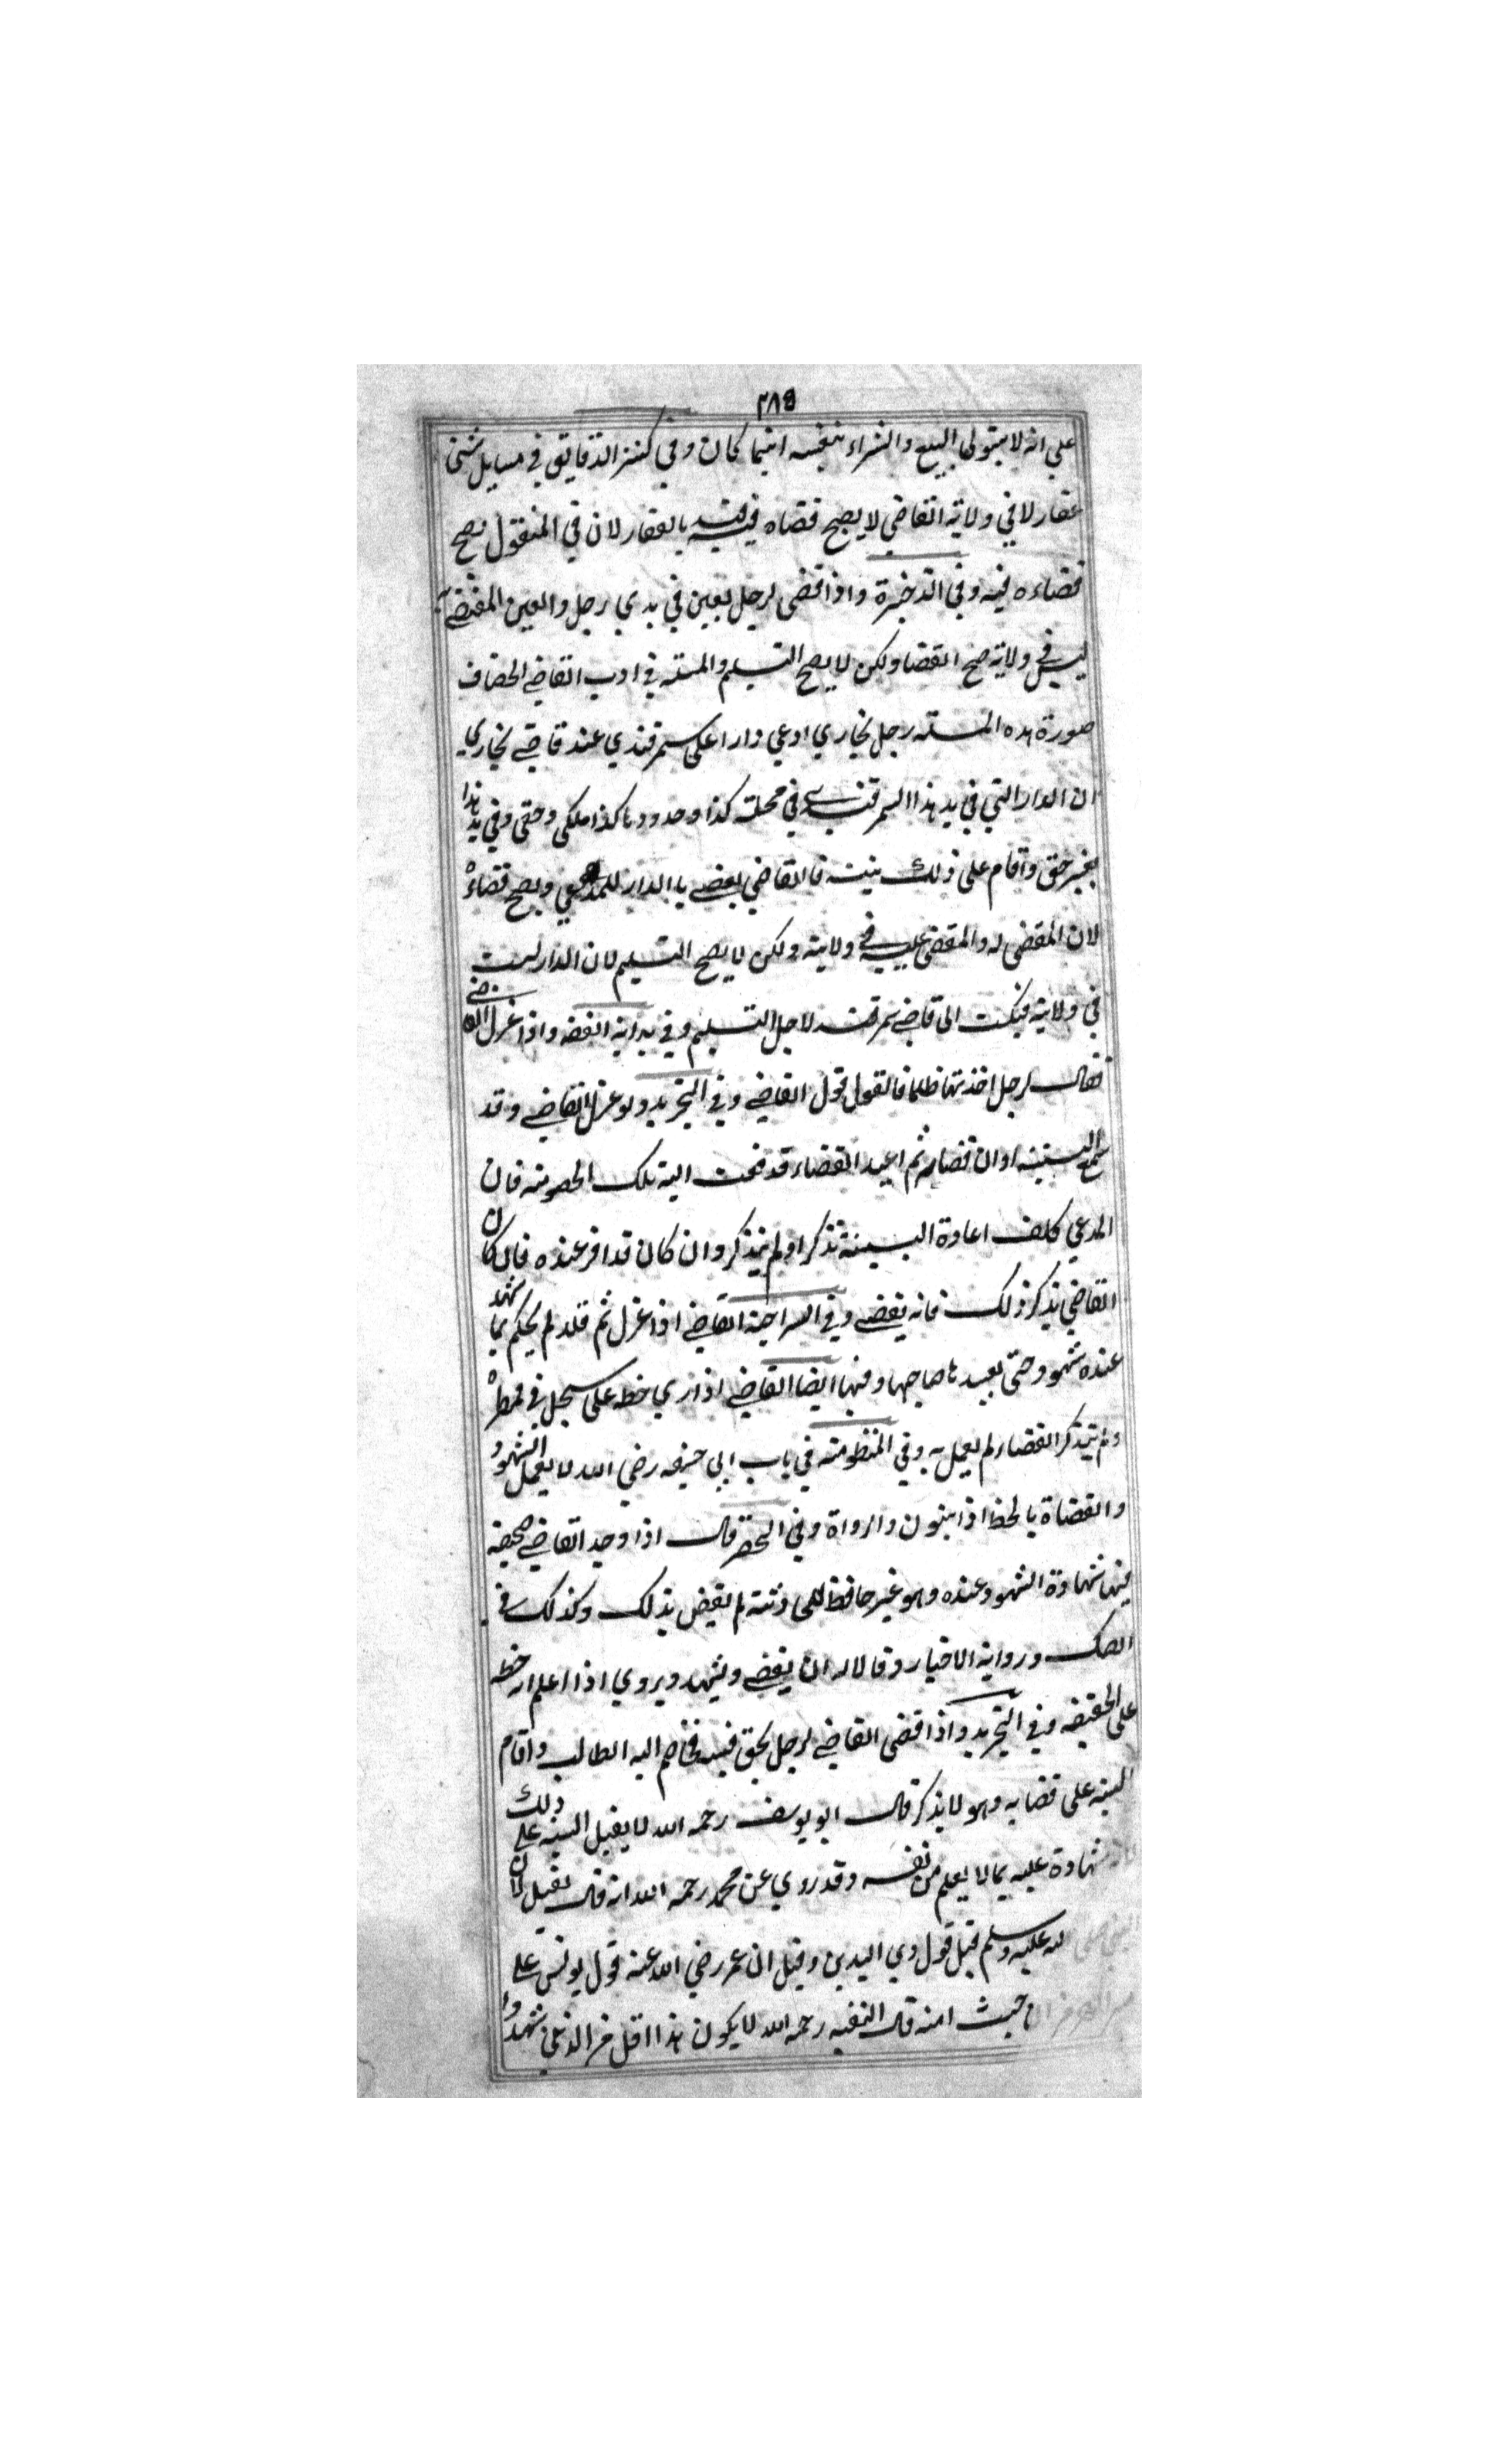 ٣٨٥
على انه لا يتولى البيع والشراء بنفسه اينما كان وفي كنز الدقايق في مسايل شتى
عقار لا في ولاية القاضي لا يصح قضاه فيه قيد بالعقار لان في المنقول يصح
قضاءه فيه وفي الذخيرة واذا قضى لرجل بعين في يدي رجل والعين المقضي
ليس في ولايته صح القضا ولكن لا يصح التسليم والمسئلة في ادب القاضي الخصاف
صورة هذه المسئله رجل بخاري ادعى دارا على سمرقندي عند قاضي بخاري
ان الدار التي في يد هذا السمرقندي في محلة كذا وحدودها كذا ملكي وحقي وفي يد هذا
بغير حق واقام على ذلك بينة فالقاضي يقضي بالدار للمدعي ويصح قضاءه
لان المقضى له والمقضى عليه في ولايته ولكن لا يصح التسليم لان الدار ليست
في ولايته فيكتب الى قاضي سمرقند لاجل التسليم وفي بداية الفقه واذا عزل القاضي
فقال لرجل اخذتها ظلما فالقول قول القاضي وفي التجريد ولو عزل القاضي وقد
سمع البينة اوان قضايه ثم اعيد القضاء قدمت اليه تلك الخصومة فان
المدعي كلف اعادة البينة تذكر او لم يتذكر وان كان قد اقر عنده فان كان
القاضي يذكر ذلك فانه يقضي وفي السراجية القاضي اذا عزل ثم قلد لم يحكم بما شهد
عنده شهود حتى يعيدها صاحبها وفيها ايضا القاضي اذا راي خطه على سجل في قمطره
ولم يتذكر القضاء لم يعمل به وفي المنظومة في باب ابي حنيفه رضي الله لا يعمل الشهود
والقضاة بالخط اذا ينبون والرواة وفي الحصر قال اذا وجد القاضي صحيفة
فيها شهادة الشهود عنده وهو غير حافظ للحادثة لم يقض بذلك وكذلك في
الصك ورواية الاخبار وقالا له ان يقضي ويشهد ويروي اذا اعلم انه خطه
على الحقيقه وفي التجريد واذا قضى القاضي لرجل بحق فيه فخاصم اليه الطالب واقام
البينه على قضايه وهو لا يذكر قال ابو يوسف رحمه الله لا يقبل البينه على ذلك
لانه شهادة عليه بما لا يعلم من نفسه وقد روي عن محمد رحمه الله انه قال يقبل لان
النبي صلى الله عليه وسلم قبل قول ذي اليدين وقيل ان عمر رضي الله عنه قول يونس على
حيث امنه قال الفقيه رحمه الله لا يكون هذا اقل من الذين شهدوا